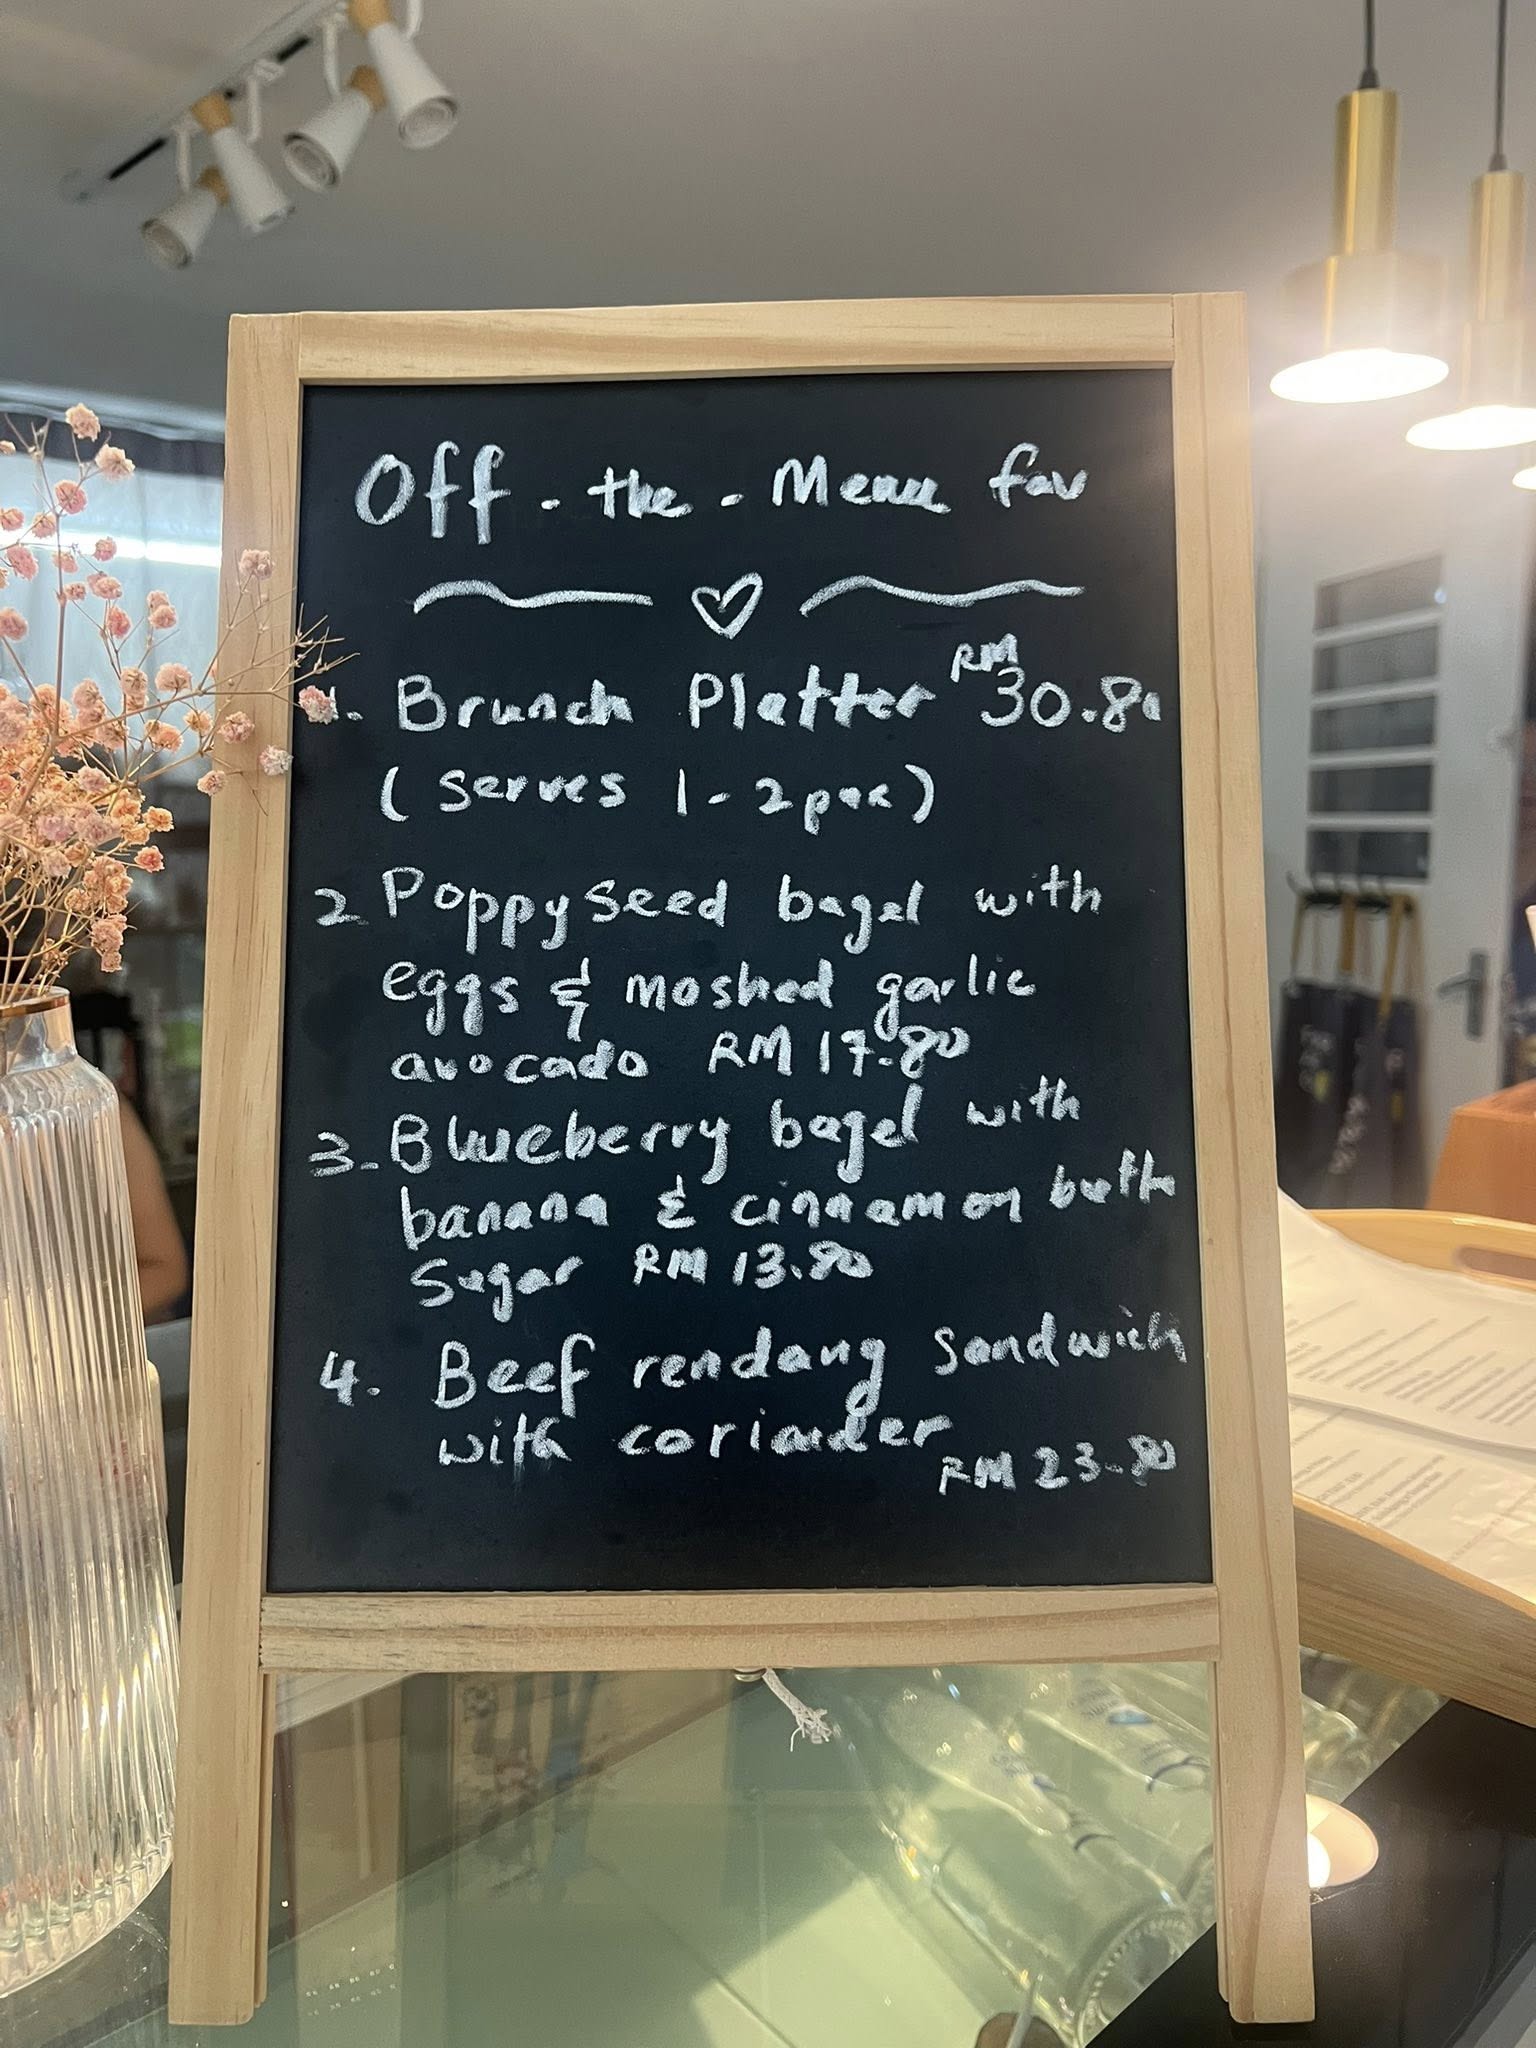 Off-the-Menu fav
1. Brunch Platter RM 30.80
(serves 1-2 pax)
2 Poppyseed bagel with
eggs & mashed garlic
avocado RM 17.80
3. Blueberry bagel with
banana & cinnamon butter
sugar RM 13.80
4. Beef rendang sandwich
with coriander
RM 23.80